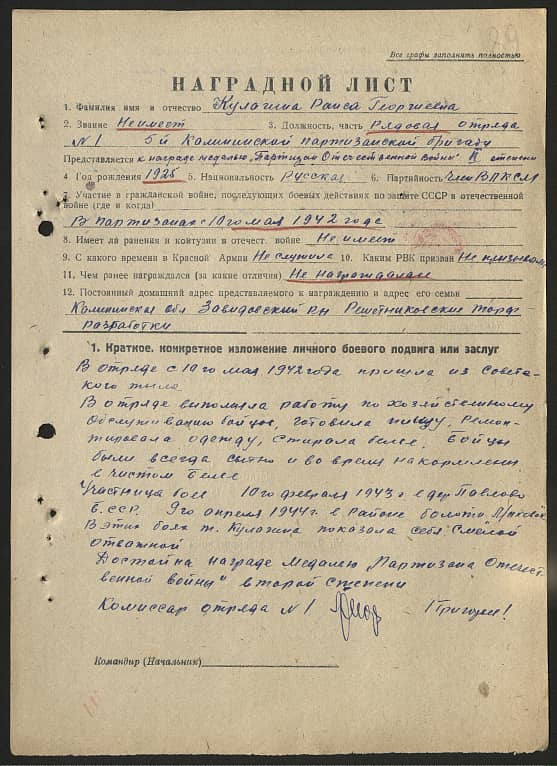 Все графы заполнять полностью
НАГРАДНОЙ ЛИСТ
1. Фамилия имя и отчество Кулагина Раиса Георгиевна
2. Звание Не имеет 3. Должность, часть Рядовая отряда
№1 5й Калининской партизанской бригады
Представляется к награде медалью "Партизан Отечественной войны" II степени
4. Год рождения 1925 5. Национальность Русская 6. Партийность Член ВЛКСМ
7. Участие в гражданской войне, последующих боевых действиях по защите СССР в отечественной
войне (где и когда)
В партизанах с 10го мая 1942 года
8. Имеет ли ранения и контузии в отечест. войне Не имеет
9. С какого времени в Красной Армии Не служила 10. Каким РВК призван Не призывалась
11. Чем ранее награждался (за какие отличия) Не награждалась
12. Постоянный домашний адрес представляемого к награждению и адрес его семьи
Калининская обл Завидовский р-н Решетниковские торф
разработки
1. Краткое, конкретное изложение личного боевого подвига или заслуг
В отряде с 10го мая 1942 года пришла из Советс-
кого тыла
В отряде выполняла работу по хозяйственному
обслуживанию бойцов, готовила пищу, Ремон-
тировала одежду, стирала белье. Бойцы
были всегда сытно и во время накормлены
в чистом белье
Участница боев 10го февраля 1943 г в дер Павлово
Б.ССР. 9го апреля 1944г. в Районе болота
В этих боях т. Кулагина показала себя Смелой
отважной
Достойна награде Медалью "Партизана Отечест-
венной войны" второй степени
Комиссар отряда №1
Командир (Начальник)